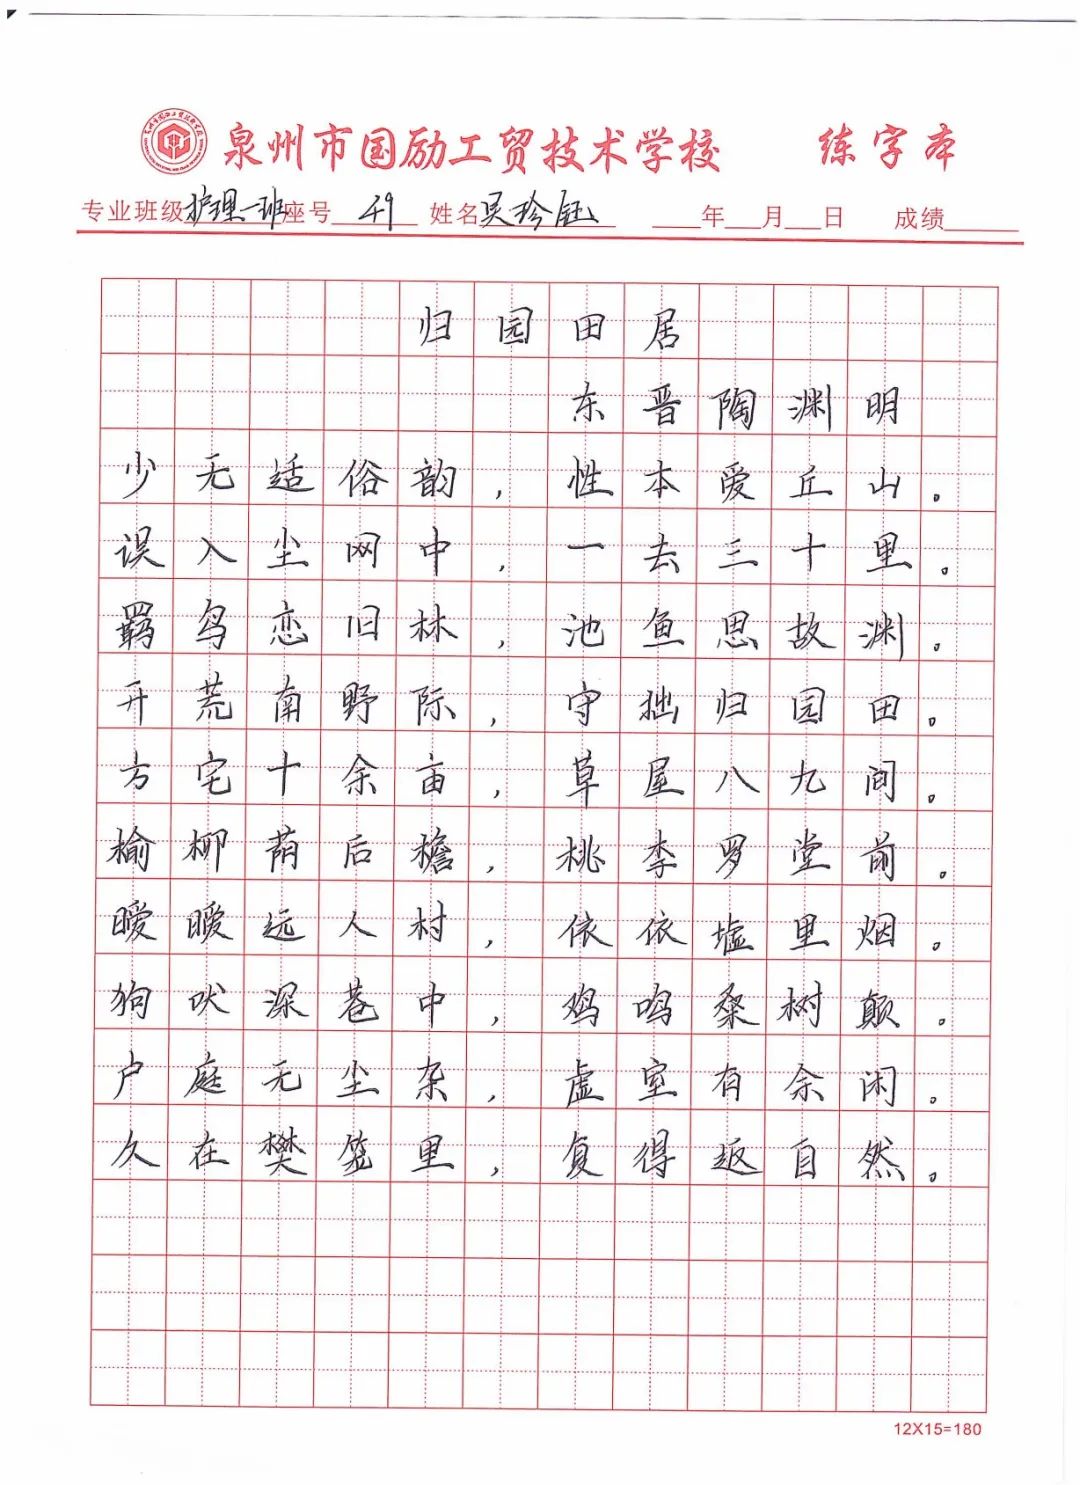 泉州市国励工贸技术学校 练字本
专业班级护理一班座号 49 姓名吴珍钰 年 月 日 成绩
归园田居
东晋陶渊明
少无适俗韵，性本爱丘山。
误入尘网中，一去三十里。
羁鸟恋旧林，池鱼思故渊。
开荒南野际，守拙归园田。
方宅十余亩，草屋八九间。
榆柳荫后檐，桃李罗堂前。
暧暧远人村，依依墟里烟。
狗吠深巷中，鸡鸣桑树颠。
户庭无尘杂，虚室有余闲。
久在樊笼里，复得返自然。
12X15=180